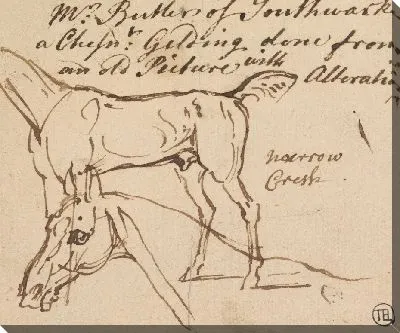 Mr. Butler of Southwark
a Chesn.t Gelding done from
an old Picture with Alterati
narrow
Cresh
TEL